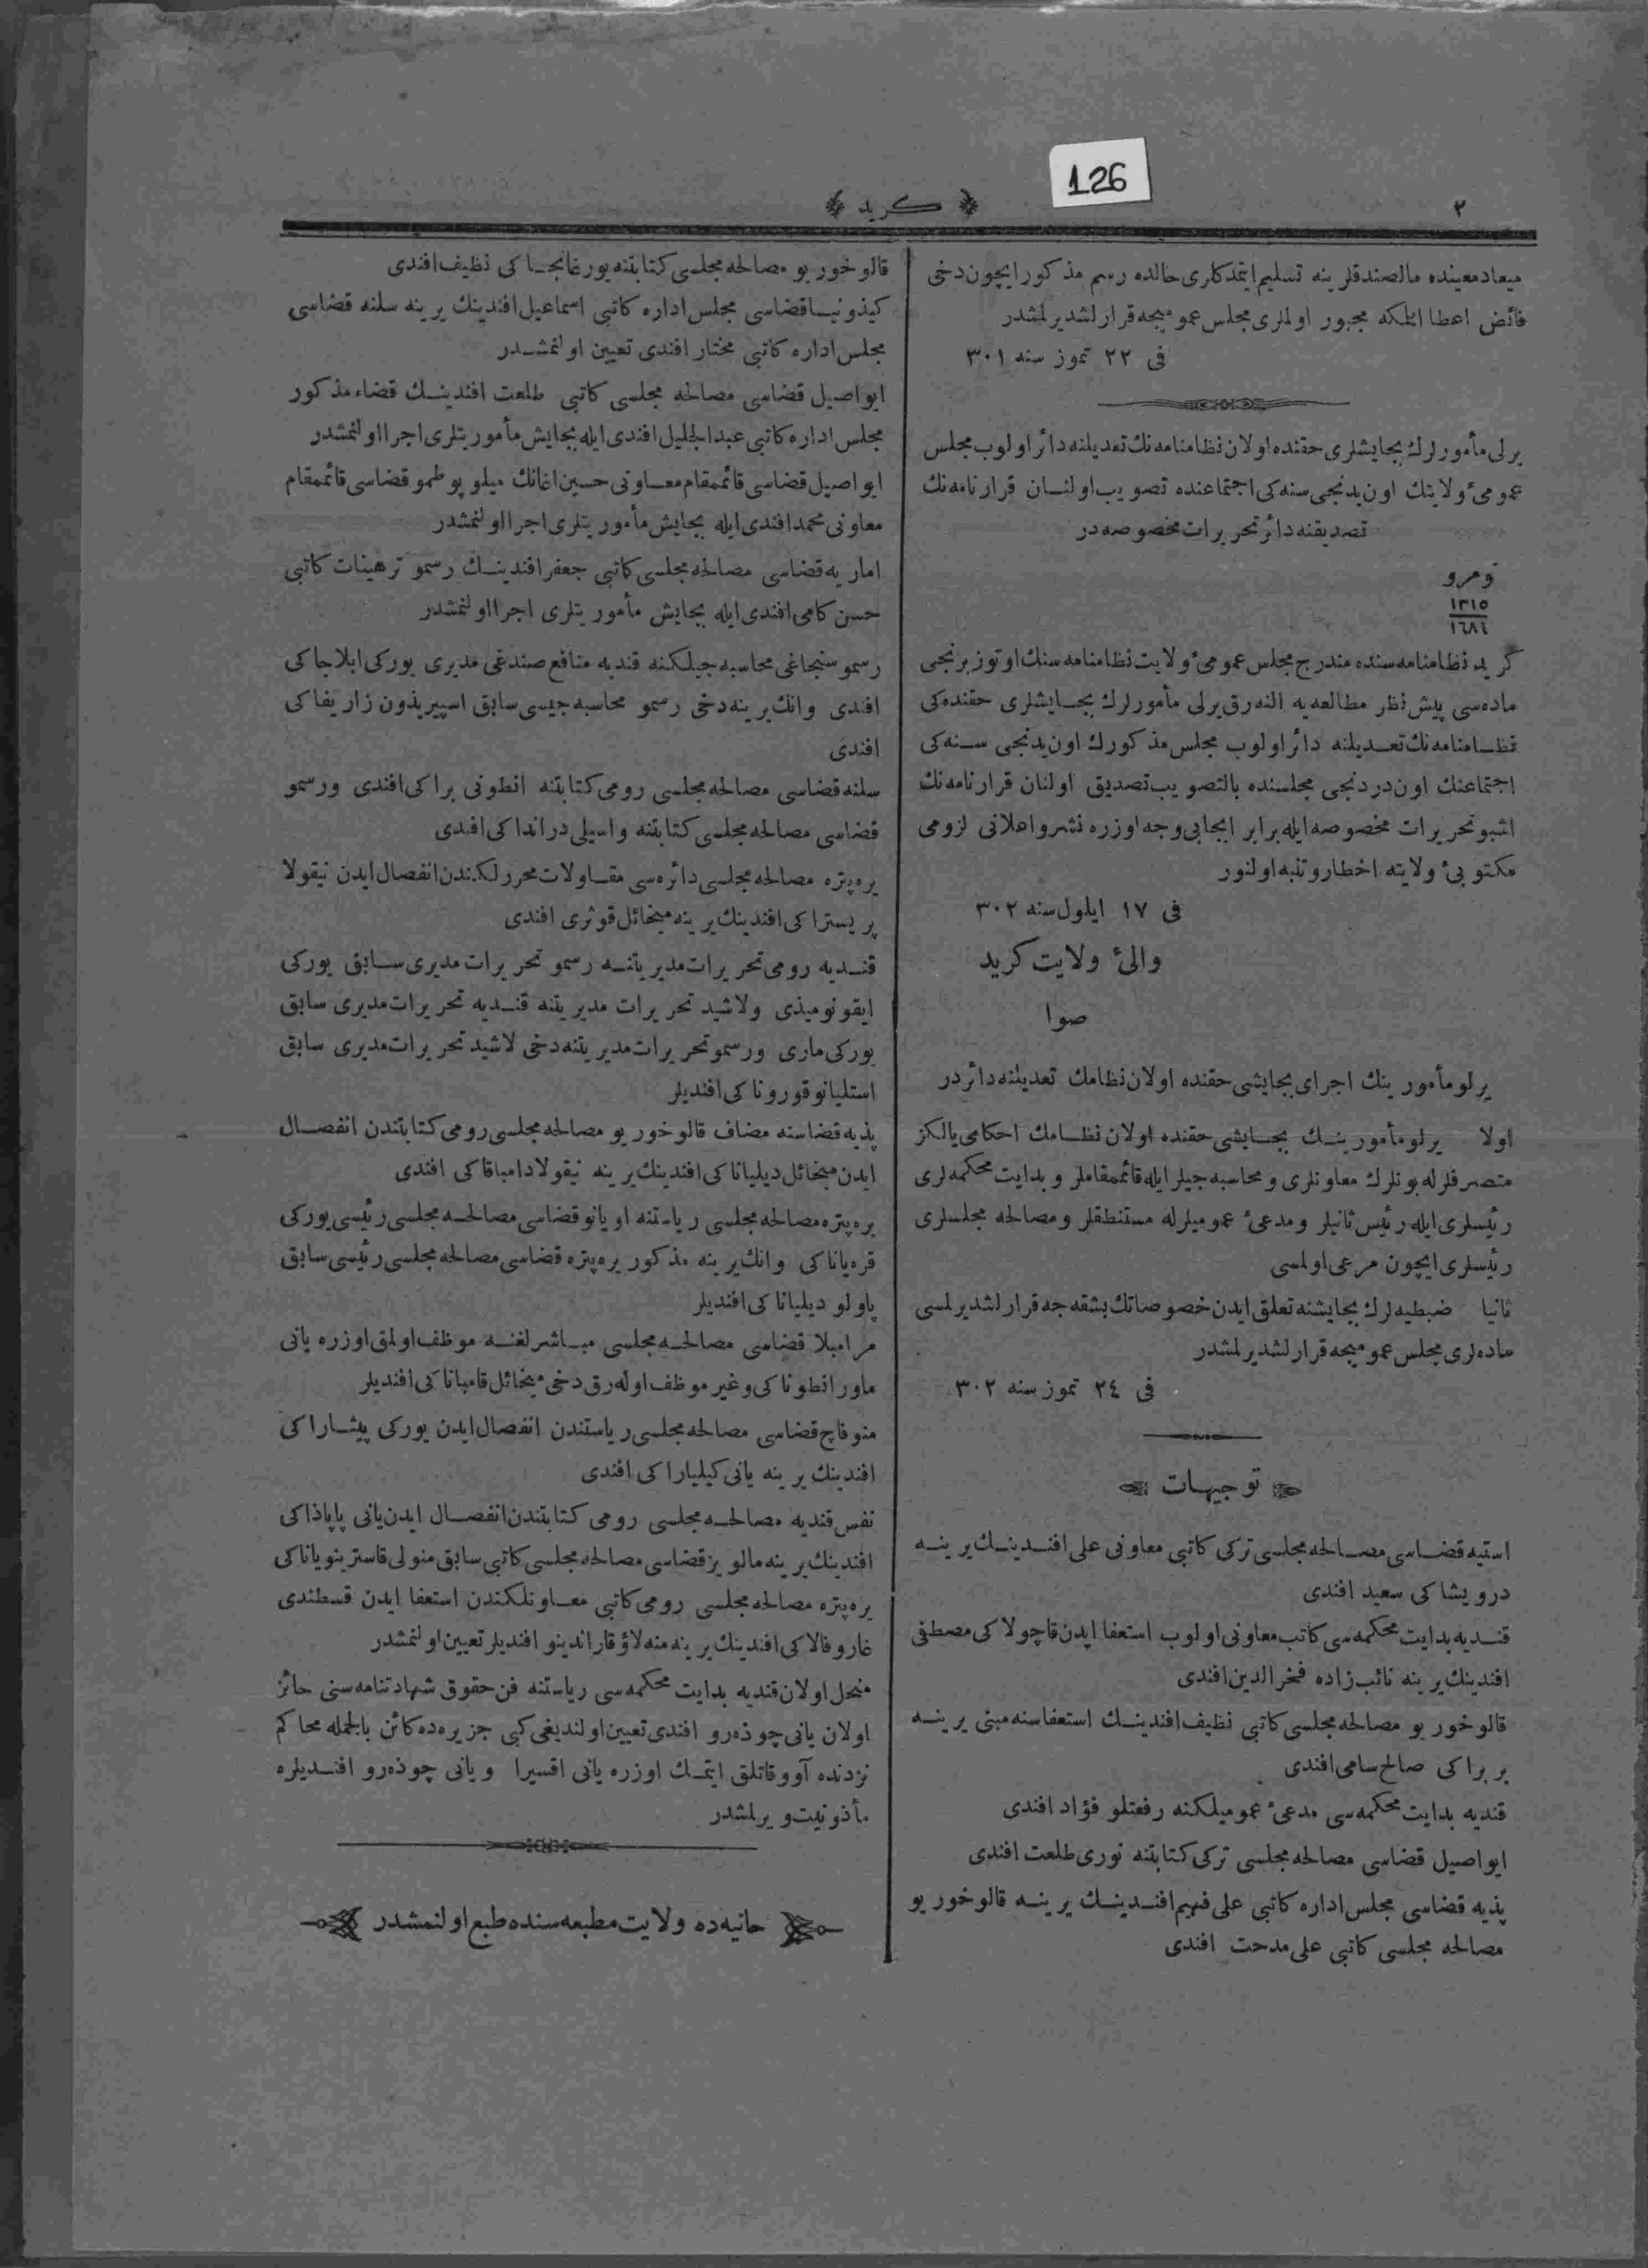 126
٢
كريد
ميعاد معينده مالصندقلرينه تسليم ايتمدكلرى حالده رسم مذكور ايچون دخى
فائض اعطا ايلمكه مجبور اولملرى مجلس عموميجه قرارلشديرلمشدر
فى ٢٢ تموز سنه ٣٠١
يرلى مأمورلرك بجايشلرى حقنده اولان نظامنامه نك تعديلنه دائر اولوب مجلس
عمومىء ولايتك اون يدنجى سنه كى اجتماعنده تصويب اولنان قرارنامه نك
تصديقنه دائر تحريرات مخصوصه در
نومرو
١٣١٥
١٦٨٦
كريد نظامنامه سنده مندرج مجلس عمومىء ولايت نظامنامه سنك اوتوز برنجى
ماده سى پيش نظر مطالعه يه النه رق يرلى مأمورلرك بجايشلرى حقنده كى
نظامنامه نك تعديلنه دائر اولوب مجلس مذكورك اون يدنجى سنه كى
اجتماعنك اون دردنجى مجلسنده بالتصويب تصديق اولنان قرارنامه نك
اشبو تحريرات مخصوصه ايله برابر ايجابى وجه اوزره نشر واعلانى لزومى
مكتوبىء ولايته اخطار وتنبه اولنور
فى ١٧ ايلول سنه ٣٠٢
والىء ولايت كريد
صوا
يرلو مأمورينك اجراى بجايشى حقنده اولان نظامك تعديلنه دائردر
اولا يرلو مأمورينك بجايشى حقنده اولان نظامك احكامى يالكز
متصرفلرله بونلرك معاونلرى و محاسبه جيلر ايله قائممقاملر و بدايت محكمه لرى
رئيسلرى ايله رئيس ثانيلر ومدعىء عموميلرله مستنطقلر ومصالحه مجلسلرى
رئيسلرى ايچون مرعى اولمسى
ثانيا ضبطيه لرك بجايشنه تعلق ايدن خصوصاتك بشقه جه قرارلشديرلمسى
ماده لرى مجلس عموميجه قرارلشديرلمشدر
فى ٢٤ تموز سنه ٣٠٢
توجيهات
استيه قضاسى مصالحه مجلسى تركى كاتبى معاونى على افندينك يرينه
درويشاكى سعيد افندى
قنديه بدايت محكمه سى كاتب معاونى اولوب استعفا ايدن قاچولاكى مصطفى
افندينك يرينه نائب زاده فخرالدين افندى
قالوخوريو مصالحه مجلسى كاتبى نظيف افندينك استعفاسنه مبنى يرينه
بربراكى صالح سامى افندى
قنديه بدايت محكمه سى مدعىء عموميلكنه رفعتلو فؤاد افندى
ايواصيل قضاسى مصالحه مجلسى تركى كتابتنه نورى طلعت افندى
پذيه قضاسى مجلس اداره كاتبى على فهيم افندينك يرينه قالوخوريو
مصالحه مجلسى كاتبى على مدحت افندى
قالوخوريو مصالحه مجلسى كتابتنه يورغانجاكى نظيف افندى
كيذونيا قضاسى مجلس اداره كاتبى اسماعيل افندينك يرينه سلنه قضاسى
مجلس اداره كاتبى مختار افندى تعيين اولنمشدر
ايواصيل قضاسى مصالحه مجلسى كاتبى طلعت افندينك قضاء مذكور
مجلس اداره كاتبى عبدالجليل افندى ايله بجايش مأموريتلرى اجرا اولنمشدر
ايواصيل قضاسى قائممقام معاونى حسين اغانك ميلوپوطمو قضاسى قائممقام
معاونى محمد افندى ايله بجايش مأموريتلرى اجرا اولنمشدر
اماريه قضاسى مصالحه مجلسى كاتبى جعفر افندينك رسمو ترهينات كاتبى
حسن كامى افندى ايله بجايش مأموريتلرى اجرا اولنمشدر
رسمو سنجاغى محاسبه جيلكنه قنديه منافع صندغى مديرى يوركى ابلاجاكى
افندى وانك يرينه دخى رسمو محاسبه جيسى سابق اسپيريذون زاريفاكى
افندى
سلنه قضاسى مصالحه مجلسى رومى كتابتنه انطونى براكى افندى ورسمو
قضاسى مصالحه مجلسى كتابتنه واسيلى درانداكى افندى
يره پتره مصالحه مجلسى دائره سى مقاولات محررلكندن انفصال ايدن نيقولا
پريستراكى افندينك يرينه ميخائل قوثرى افندى
قنديه رومى تحريرات مديريتنه رسمو تحريرات مديرى سابق يوركى
ايقونوميذى ولاشيد تحريرات مديريتنه قنديه تحريرات مديرى سابق
يوركى مارى ورسمو تحريرات مديريتنه دخى لاشيد تحريرات مديرى سابق
استليانو قوروناكى افنديلر
پذيه قضاسنه مضاف قالوخوريو مصالحه مجلسى رومى كتابتندن انفصال
ايدن ميخائل ديلياناكى افندينك يرينه نيقولا دامباقاكى افندى
يره پتره مصالحه مجلسى رياستنه اويانو قضاسى مصالحه مجلسى رئيسى يوركى
قره ياناكى وانك يرينه مذكور يره پتره قضاسى مصالحه مجلسى رئيسى سابق
پاولو ديلياناكى افنديلر
مرامبلا قضاسى مصالحه مجلسى مباشرلغنه موظف اولمق اوزره يانى
ماورانطوناكى وغير موظف اوله رق دخى ميخائل قامپاناكى افنديلر
منوفاچ قضاسى مصالحه مجلسى رياستندن انفصال ايدن يوركى پيتساراكى
افندينك يرينه يانى كيلياراكى افندى
نفس قنديه مصالحه مجلسى رومى كتابتندن انفصال ايدن يانى پاپاذاكى
افندينك يرينه مالويز قضاسى مصالحه مجلسى كاتبى سابق منولى قاسترينوياناكى
يره پتره مصالحه مجلسى رومى كاتبى معاونلكندن استعفا ايدن قسطندى
غاروفالاكى افندينك يرينه منه لاؤ قاراندينو افنديلر تعيين اولنمشدر
منحل اولان قنديه بدايت محكمه سى رياستنه فن حقوق شهادتنامه سنى حائز
اولان يانى چوذه رو افندى تعيين اولنديغى كبى جزيره ده كائن بالجمله محاكم
نزدنده آووقاتلق ايتمك اوزره يانى اقسيرا و يانى چوذه رو افنديلره
مأذونيت ويرلمشدر
حانيه ده ولايت مطبعه سنده طبع اولنمشدر